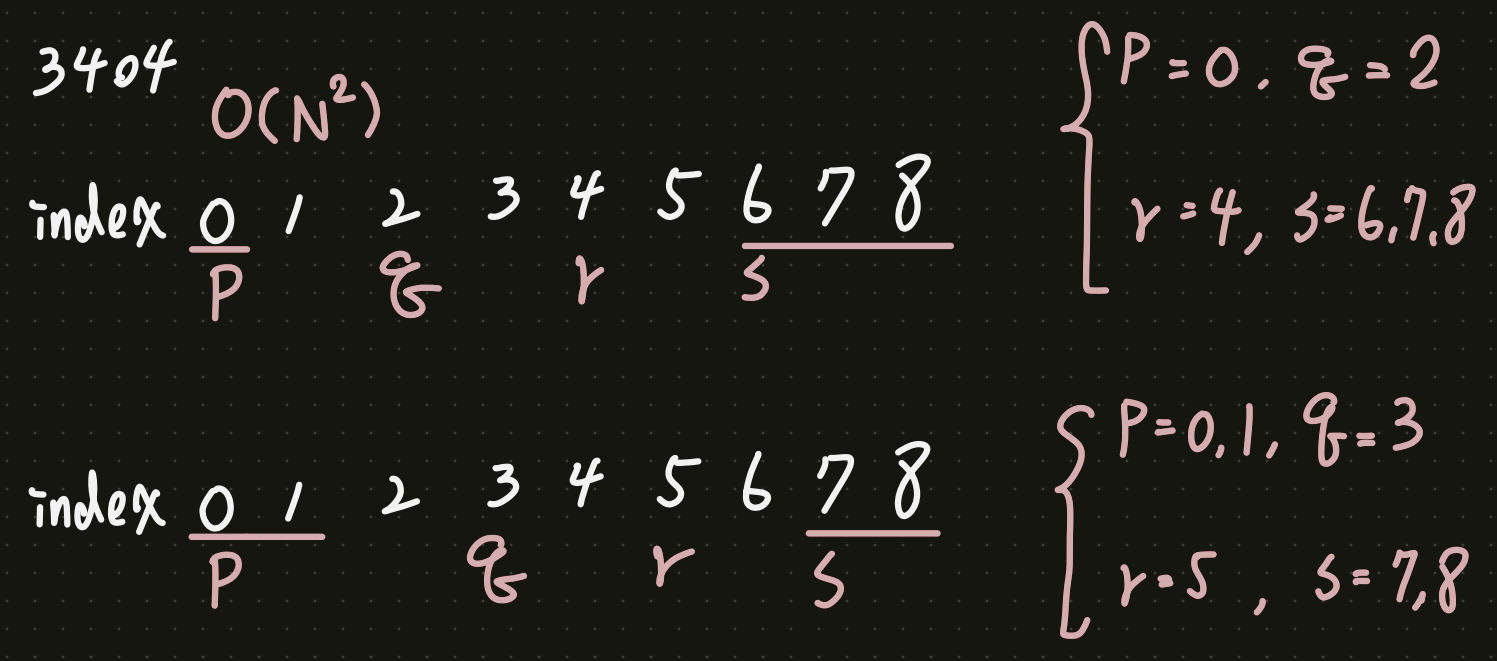 3404
O(N²)
index 0 1 2 3 4 5 6 7 8
P q r s
P = 0, q = 2
r = 4, s = 6,7,8
index 0 1 2 3 4 5 6 7 8
P q r s
P = 0,1, q = 3
r = 5, s = 7,8